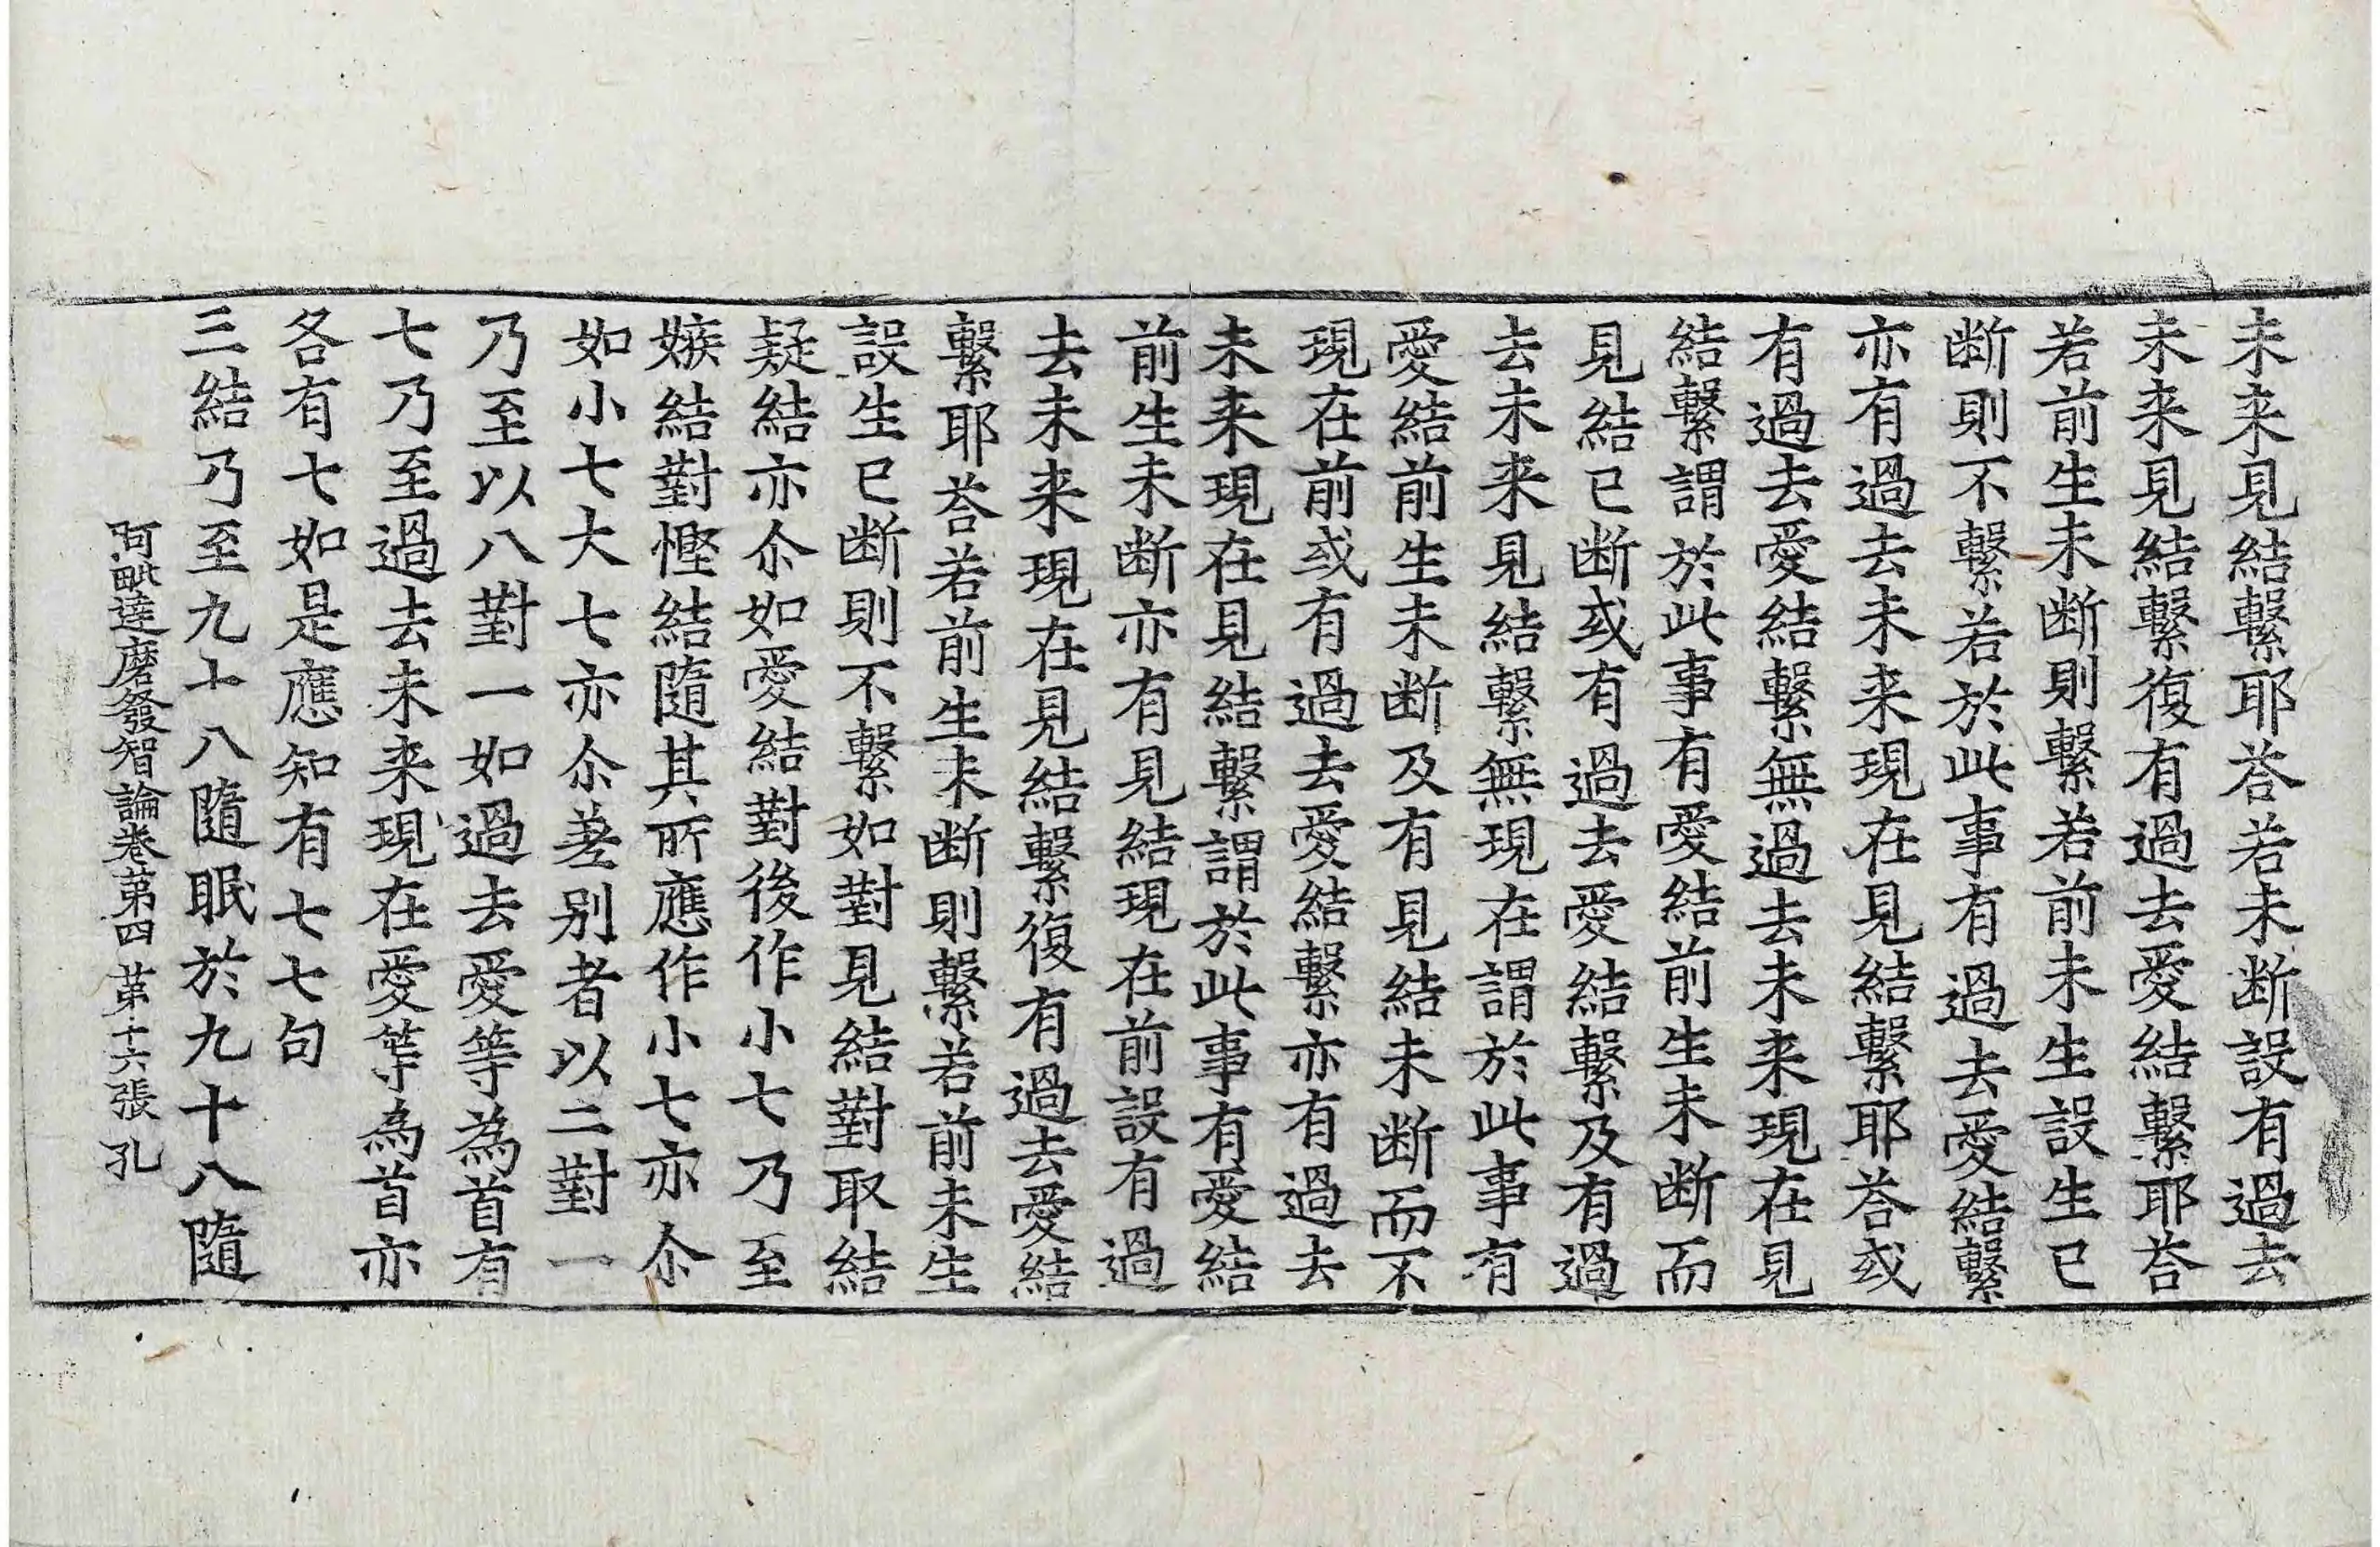 未来見結繫耶荅若未断設有過去
未来見結繫復有過去愛結繫耶荅
若前生未断則繫若前未生設生已
断則不繫若於此事有過去愛結繫
亦有過去未来現在見結繫耶荅或
有過去愛結繫無過去未来現在見
結繫謂於此事有愛結前生未断而
見結已断或有過去愛結繫及有過
去未来見結繫無現在謂於此事有
愛結前生未断及有見結未断而不
現在前或有過去愛結繫亦有過去
未来現在見結繫謂於此事有愛結
前生未断亦有見結現在前設有過
去未来現在見結繫復有過去愛結
繫耶荅若前生未断則繫若前未生
設生已断則不繫如對見結對取結
疑結亦尒如愛結對後作小七乃至
嫉結對慳結隨其所應作小七亦尒
如小七大七亦尒差别者以二對一
乃至以八對一如過去愛等為首有
七乃至過去未来現在愛等為首亦
各有七如是應知有七七句
三結乃至九十八隨眠於九十八隨
阿毗達磨發智論卷第四 第十六張 孔